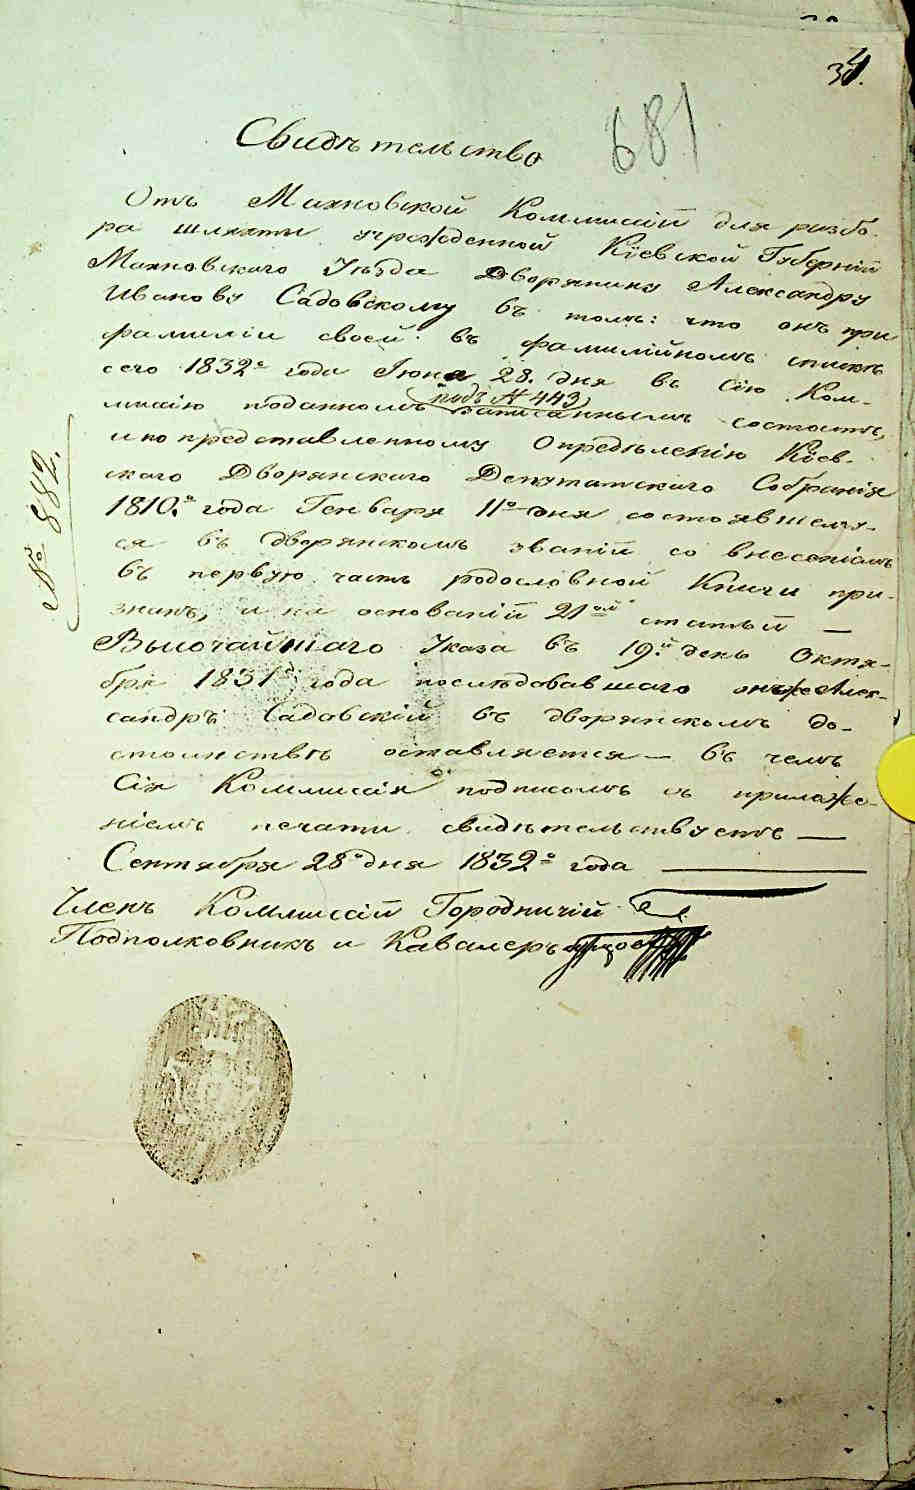 34.
681
Свидѣтельство
Отъ Махновской Коммисіи для разбо-
ра шляхты учрежденной Кіевской Губерніи
Махновскаго Уѣзда Дворянину Александру
Иванову Садовскому въ томъ: что онъ при
фамиліи своей въ фамилійномъ спискѣ
сего 1832го года Іюня 28. дня въ сію Ком-
мисію поданномъ подъ № 443 записаннымъ состоитъ,
и по представленному Опредѣленію Кіев-
скаго Дворянскаго Депутатскаго Собранія
1810го года Генваря 11го дня состоявшему-
ся въ дворянскомъ званіи со внесеніемъ
въ первую часть родословной Книги при-
знанъ, и на основаніи 21ой статьи —
Высочайшаго Указа въ 19й день Октя-
бря 1831го года послѣдовавшаго онъ же Алек-
сандръ Садовскій въ дворянскомъ до-
стоинствѣ оставляется — въ чемъ
Сія Коммисія подписомъ съ приложе-
ніемъ печати свидѣтельствуетъ —
Сентября 28го дня 1832го года
Членъ Коммисіи Городничій
Подполковникъ и Кавалеръ
№ 882.